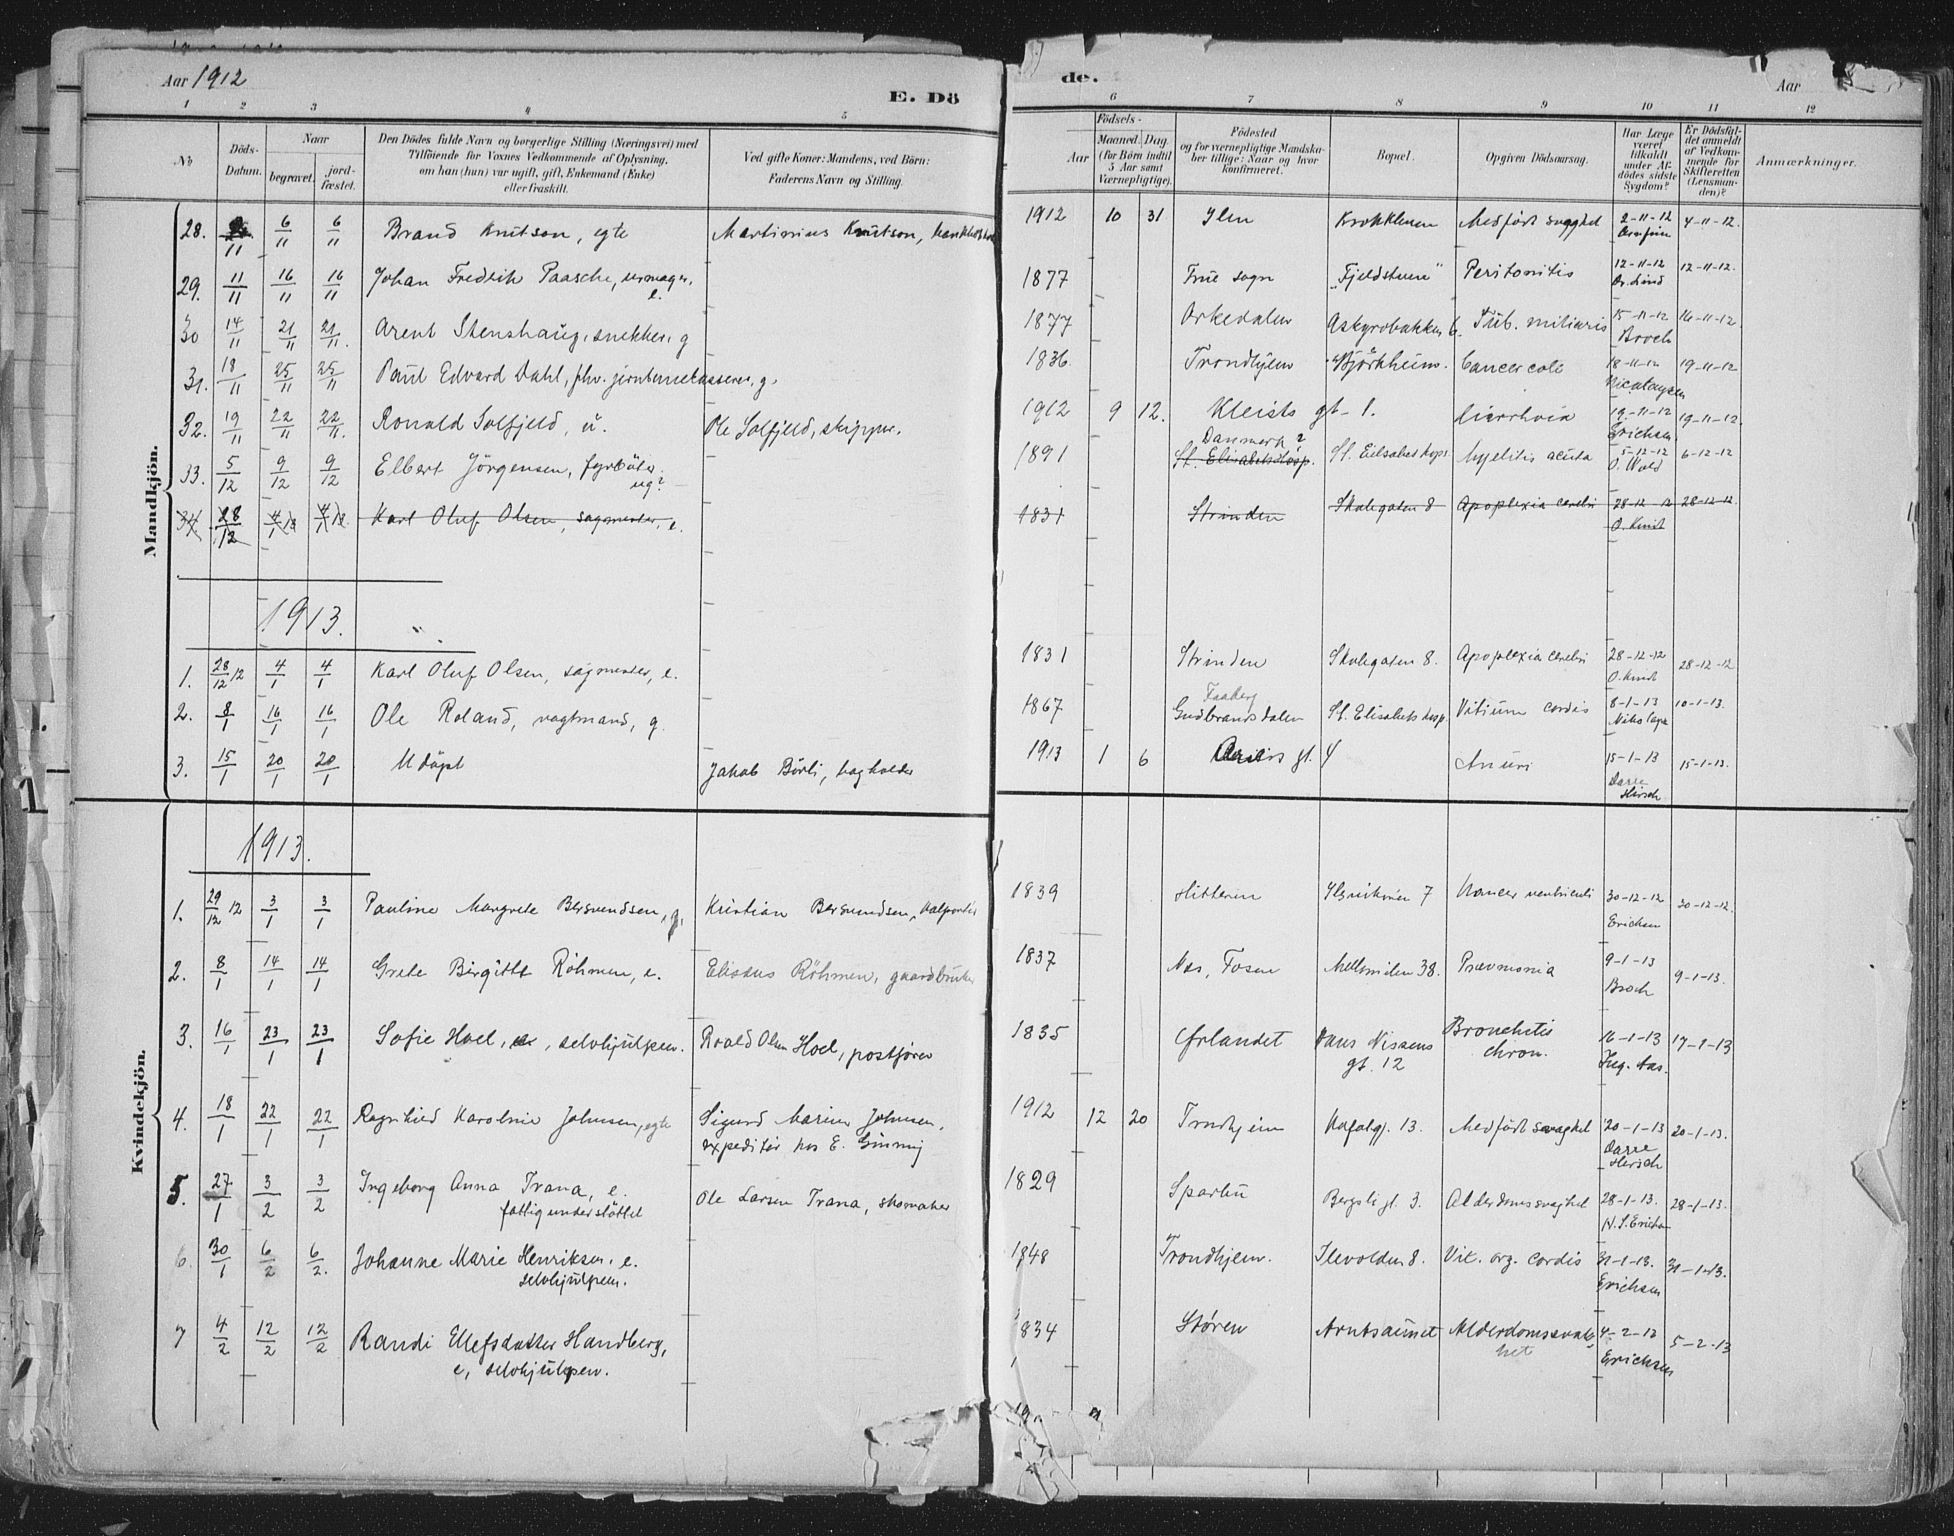 Aar 1912
E. Dö
de.
Aar
1 2 3 4 5
6 7 8 9 10 11 12
No
Döds-Datum.
Naar
begravet.
jord-fæstet.
Den Dödes fulde Navn og borgerlige Stilling (Næringsvei) med
Tilföiende for Voxnes Vedkommende af Oplysning,
om han (hun) var ugift, gift, Enkemand (Enke)
eller fraskilt.
Ved gifte Koner: Mandens, ved Börn:
Faderens Navn og Stilling.
Födsels-
Aar
Maaned. Dag.
(for Börn indtil
5 Aar samt
Værnepligtige).
Födested
og for værnepligtige Mandska-
ber tillige: Naar og hvor
konfirmeret.
Bopæl.
Opgiven Dödsaarsag.
Har Læge
været
tilkaldt
under Af-
dödes sidste
Sygdom?
Er Dödsfal-
det anmeldt
af Vedkom-
mende for
Skifteretten
(Lensman-
den)?
Anmærkninger.
Mandkjön.
28. 2/11 6/11 6/11 Brand Knutson, egte Martinius Knutson, 1912 10 31 Ilen Krokkleuen Medfödt svaghet 2-11-12 4-11-12.
29. 11/11 16/11 16/11 Johan Fredrik Paasche, urmager, e. 1877 Frue sogn "Fjeldstuen" Peritonitis 12-11-12 Dr. Lund 12-11-12.
30 14/11 21/11 21/11. Arent Stenshaug, snekker, g 1877 Orkedalen Askyrobakken 6. Tub. miliaris 15-11-12 Broch 16-11-12.
31. 18/11 25/11 25/11 Paul Edvard Dahl, fhv. jernbanekasserer, g. 1836. Trondhjem "Björkheim". Cancer coli 18-11-12 Nicolaysen 19-11-12
32. 19/11 22/11 22/11. Ronald Solfjeld, u. Ole Solfjeld, skipper. 1912 9 12. Kleists gt. 1. Diarrhoia 19-11-12 Erichsen 19-11-12
33. 5/12 9/12 9/12 Elbert Jörgensen, fyrböter. ug? 1891 Danmark? St. Elisabetshosp. St. Elisabets hosp. Myelitis acuta 5-12-12 O. Wold 6-12-12
34 28/12 4/1 13 4/1 13. Karl Oluf Olsen, sagmester, e. 1831 Strinden Skolegaten 8 Apoplexia cerebri 28-12-12 O. Kmdt 28-12-12
1913.
1. 28/12 12 4/1 4/1 Karl Oluf Olsen, sagmester, e. 1831 Strinden Skolegaten 8. Apoplexia cerebri 28-12-12 O. Kmdt 28-12-12
2. 8/1 16/1 16/1 Ole Roland, vagtmand, g. 1867 Faaberg Gudbrandsdalen St. Elisabets hosp. Vitium cordis 8-1-13 10-1-13.
3. 15/1 20/1 20/1 Udöpt Jakob Börli, bagholder 1913 1 6 gt. 4 Anuri 15-1-13 Darre Hirsch 15-1-13.
Kvindekjön.
1913.
1. 29/12 12 3/1 3/1 Pauline Margrete Bersvendsen, g. Kristian Bersvendsen, 1839 Hitteren Ilsvikören 7 Kancer ventriculi 30-12-12 Erichsen 30-12-12.
2. 8/1 14/1 14/1 Grete Birgitte Röhmen, e. Elissus Röhmen, gaardbruker 1837 Næs, Fosen Mellemilen 38. Pneumonia 9-1-13 Broch 9-1-13.
3. 16/1 23/1 23/1 Sofie Hoel, e, selvhjulpen. Roald Olsen Hoel, postförer 1835 Ørlandet Hans Nissens gt. 12 Bronchitis chron. 16-1-13 Ing. Aas. 17-1-13
4. 18/1 22/1 22/1 Ragnhild Karoline Johnsen, egte Sigurd Marius Johnsen, expeditör hos E. Gimmig 1912 12 20 Trondhjem 13. Medfödt svaghet 20-1-13 Darre Hirsch 20-1-13.
5. 27/1 3/2 3/2 Ingeborg Anna Trana, e. fattigunderstöttet Ole Larsen Trana, skomaker 1829 Sparbu Bergsli gt. 3. Alderdomssvaghet 28-1-13. 28-1-13.
6. 30/1 6/2 6/2. Johanne Marie Henriksen, e. selvhjulpen. 1848 Trondhjem. Ilevolden 8. Vit. org. cordis 31-1-13. Erichsen 31-1-13.
7 4/2 12/2 12/2 Randi Ellefsdatter Handberg, e, selvhjulpen. 1834 Støren Arntsaunet Alderdomssvaghet 4-2-13 Erichsen 5-2-13